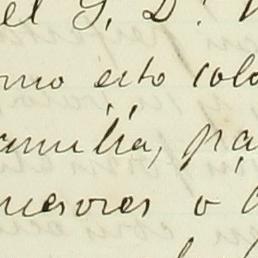 el S. D.
mo esto colo
amilia, pa
nesores o